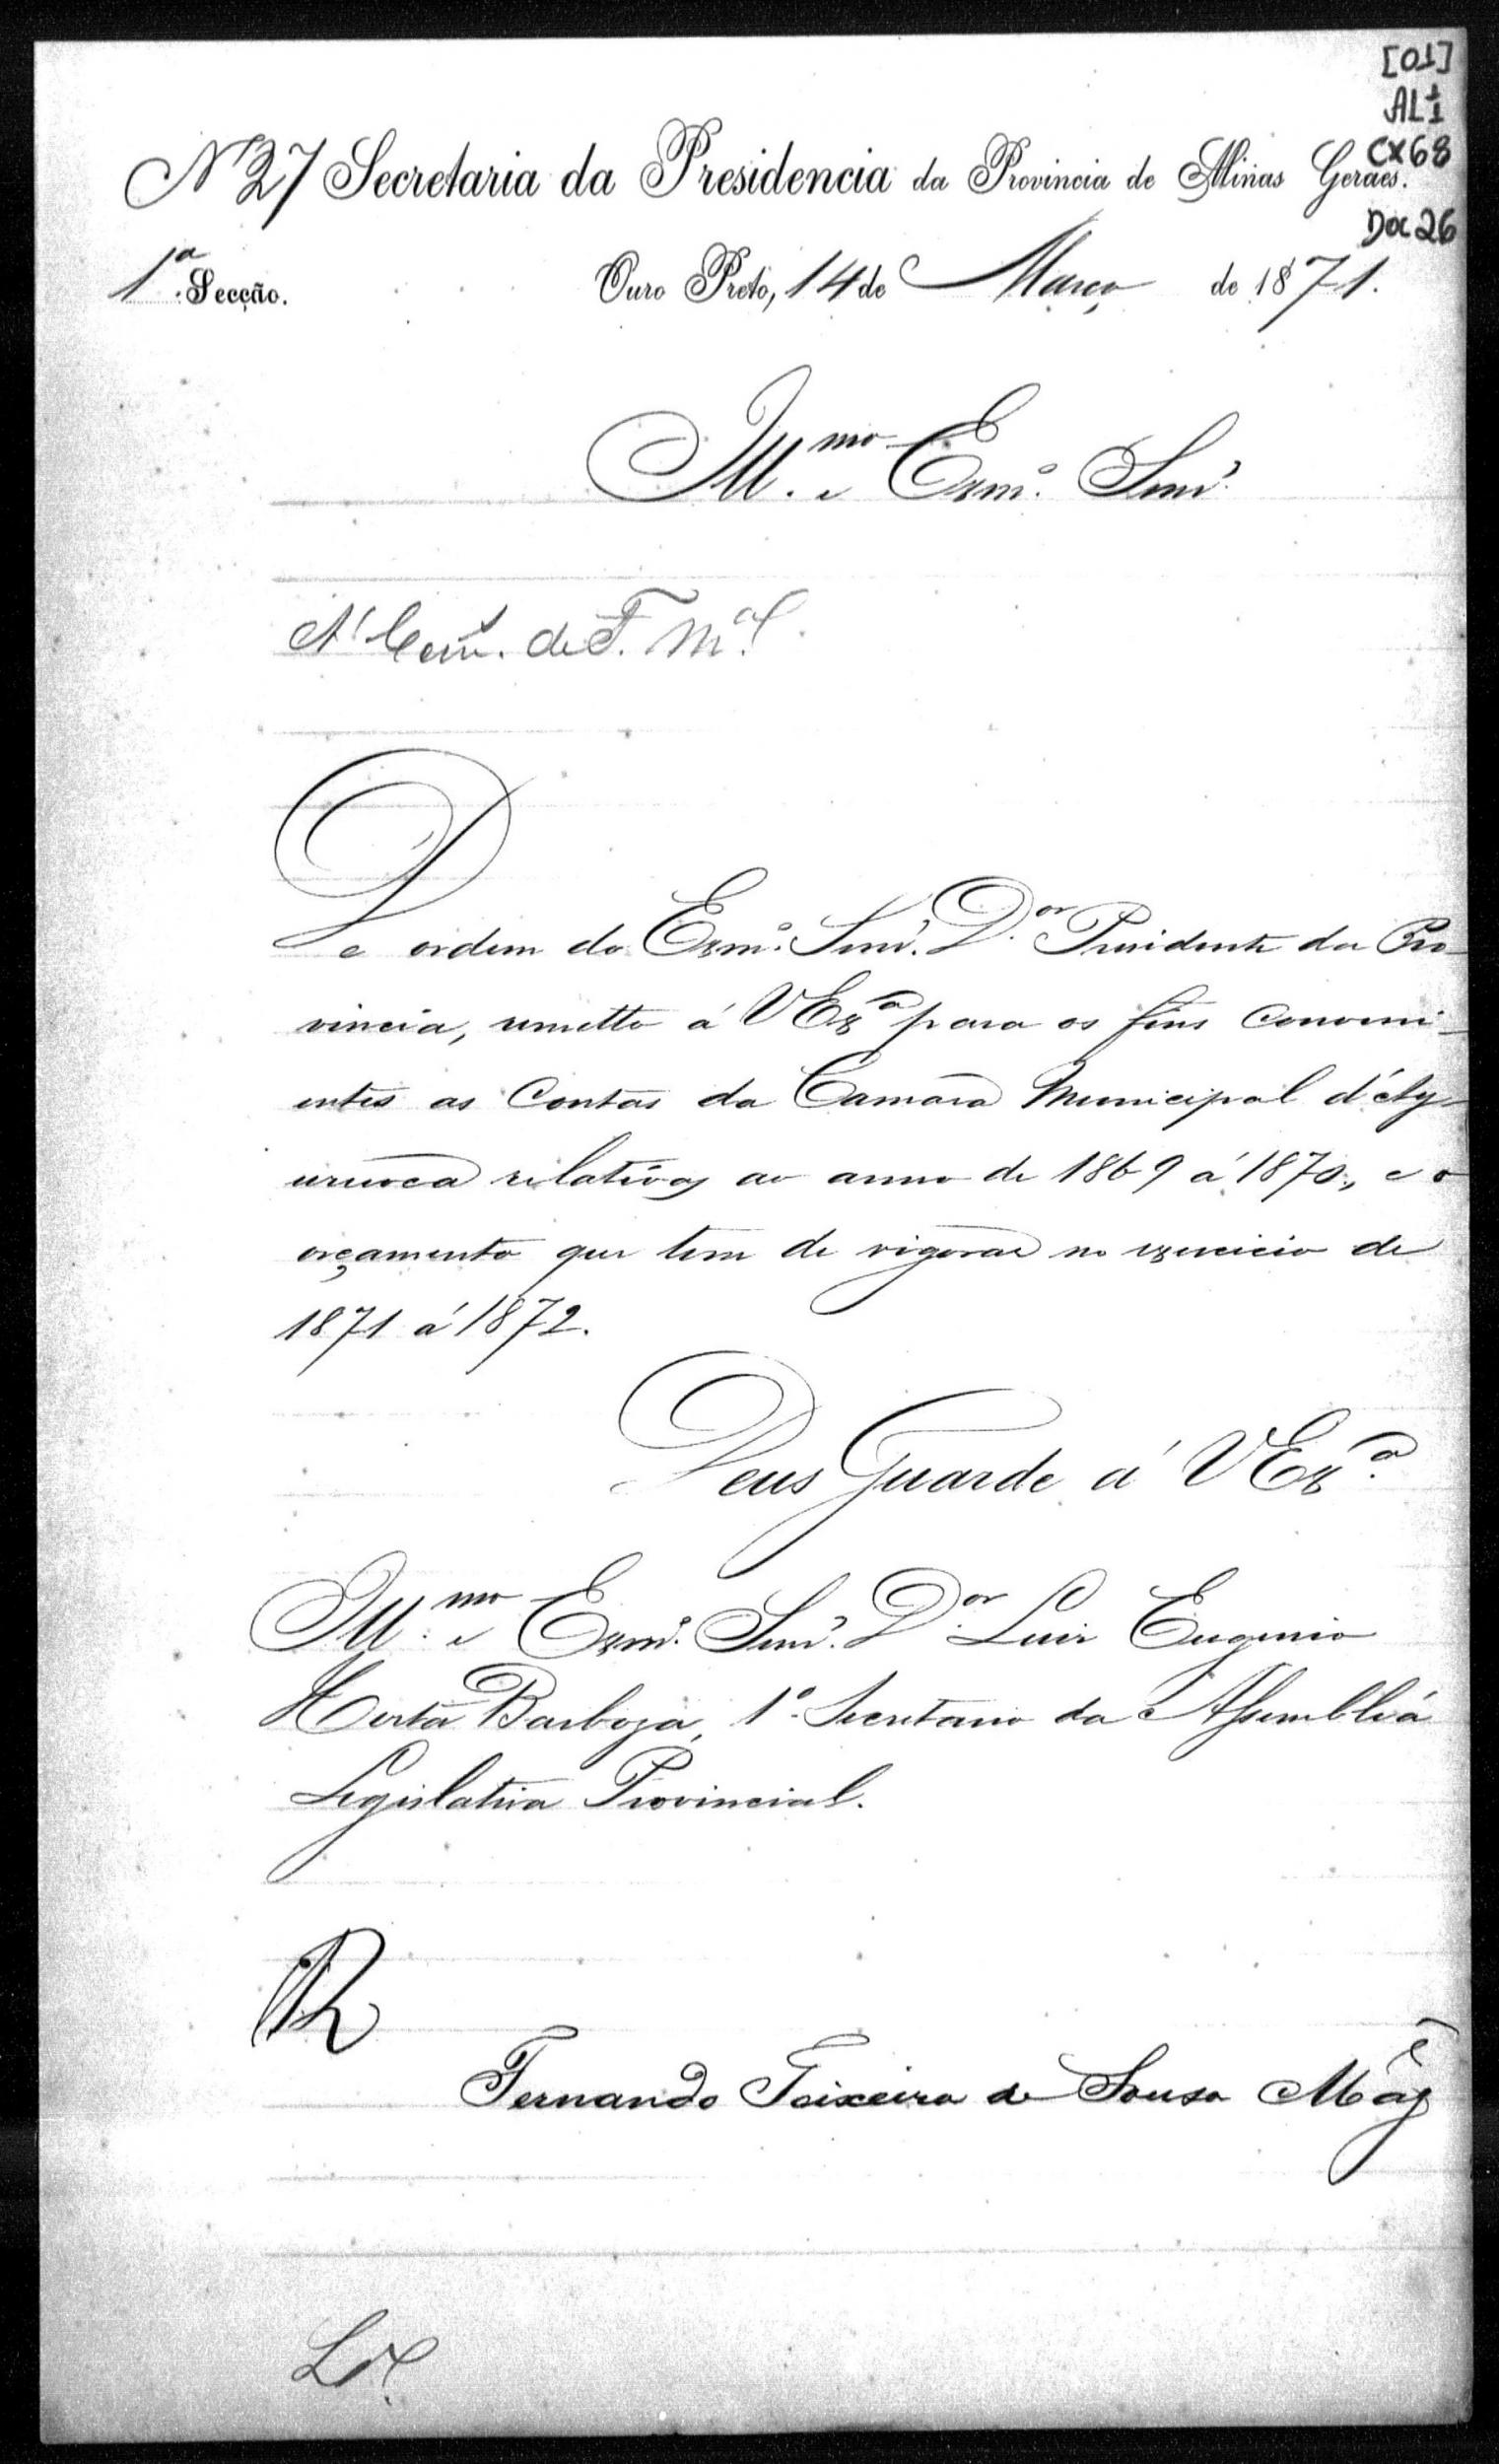 [01]
AL 1/1
CX 68
Doc 26
Nº 27 Secretaria da Presidencia da Provincia de Minas Geraes.
1ª Secção. Ouro Preto, 14 de Março de 1871.
Illmo. e Exmo. Senr.
A' Com. de F. Mal.
De ordem do Exmo. Senr. Dor. Presidente da Pro-
vincia, remetto á V Exª para os fins conveni-
entes as Contas da Camara Municipal d'Ay-
uruoca relativas ao anno de 1869 á 1870, e o
orçamento que tem de vigorar no exercicio de
1871 á 1872.
Deus Guarde á V Exª
Illmo. e Exmo. Senr. Dor. Luiz Eugenio
Horta Barboza, 1º Secretario da Assembléa
Legislativa Provincial.
Fernando Teixeira de Sousa Mag